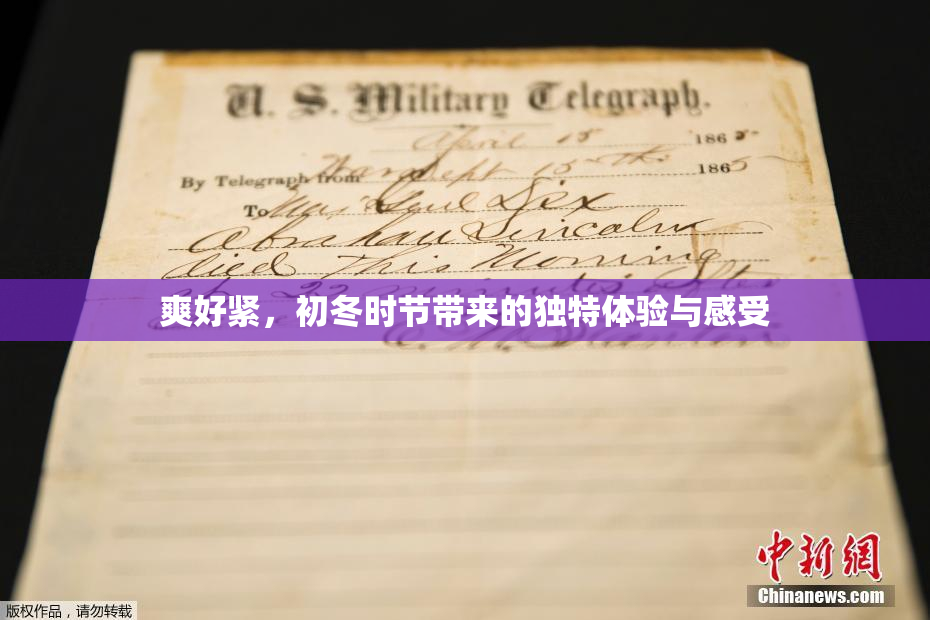 U. S. Military Telegraph.
April 15 1865
By Telegraph from War Dept 15th 1865
To Maj Genl Dix
Abraham Lincoln
died This Morning
at 22 minutes after
爽好紧，初冬时节带来的独特体验与感受
E. M. Stanton
中新網
Chinanews.com
版权作品，请勿转载